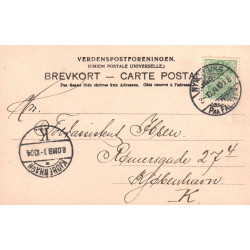 VERDENSPOSTFORENINGEN.
(UNION POSTALE UNIVERSELLE.)
BREVKORT – CARTE POSTALE
Paa denne Side skrives kun Adressen. Côté réservé à l'adresse.
Hr.
Ibsen.
Rømersgade 27⁴
Kjøbenhavn
K.
KJØBENHAVN
K